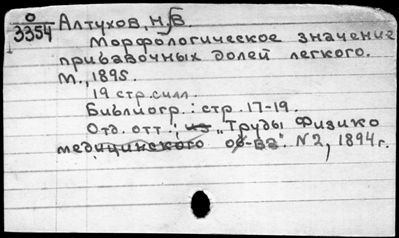 О
3354
Алтухов, Н. В.
Морфологическое значение
прибавочных долей легкого.
М., 1895.
19 стр. силл.
Библиогр.: стр. 17-19.
Отд. отт.: из "Труды Физико
медицинского об-ва". №2, 1894 г.